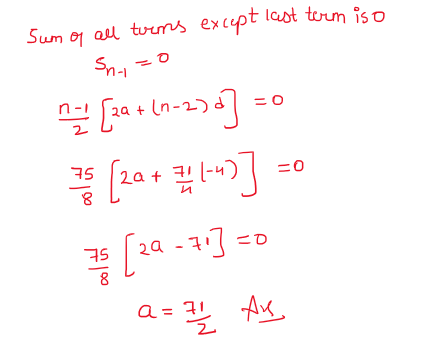 Sum of all terms except last term is 0
S_{n-1} = 0
\frac{n-1}{2} [2a + (n-2) d] = 0
\frac{75}{8} [2a + \frac{71}{4} (-4)] = 0
\frac{75}{8} [2a - 71] = 0
a = \frac{71}{2} Ans